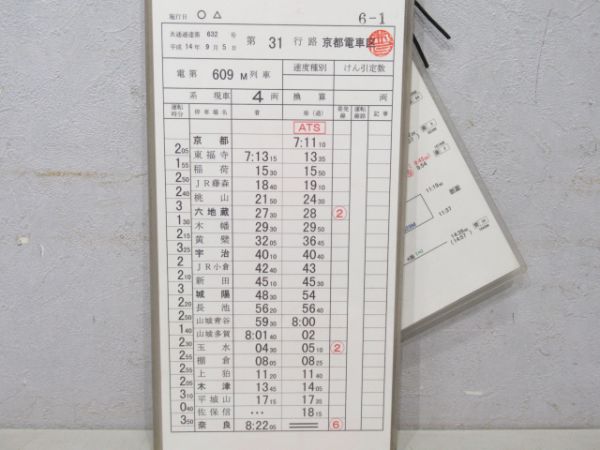 施行日 ○ △ 6-1
大通運達第 632 号
平成 14年 9月 5日 第 31 行路 京都電車区
電 第 609 M 列車 速度種別 けん引定数
系 現車 4 両 換算 両
運転時分 停車場名 着 発(通) 着発線 記事
ATS
京都 7:11 10
2 05 東福寺 7:13 15 13 35
1 55 稲荷 15 30 15 50
2 50 JR藤森 18 40 19 10
2 40 桃山 21 50 24 30
3 六地蔵 27 30 28 ②
1 30 木幡 29 30 29 50
2 15 黄檗 32 05 36 45
3 25 宇治 40 10 40 40
2 JR小倉 42 40 43
2 10 新田 45 10 45 30
3 城陽 48 30 54
2 20 長池 56 20 56 40
2 50 山城青谷 59 30 8:00
1 40 山城多賀 8:01 40 02
2 30 玉水 04 30 05 10 ②
2 55 棚倉 08 05 08 25
2 55 上狛 11 20 11 40
2 05 木津 13 45 14 05
3 10 平城山 17 15 17 35
0 40 佐保信 … 18 15
3 50 奈良 8:22 05 ⑥
11:19
11:37